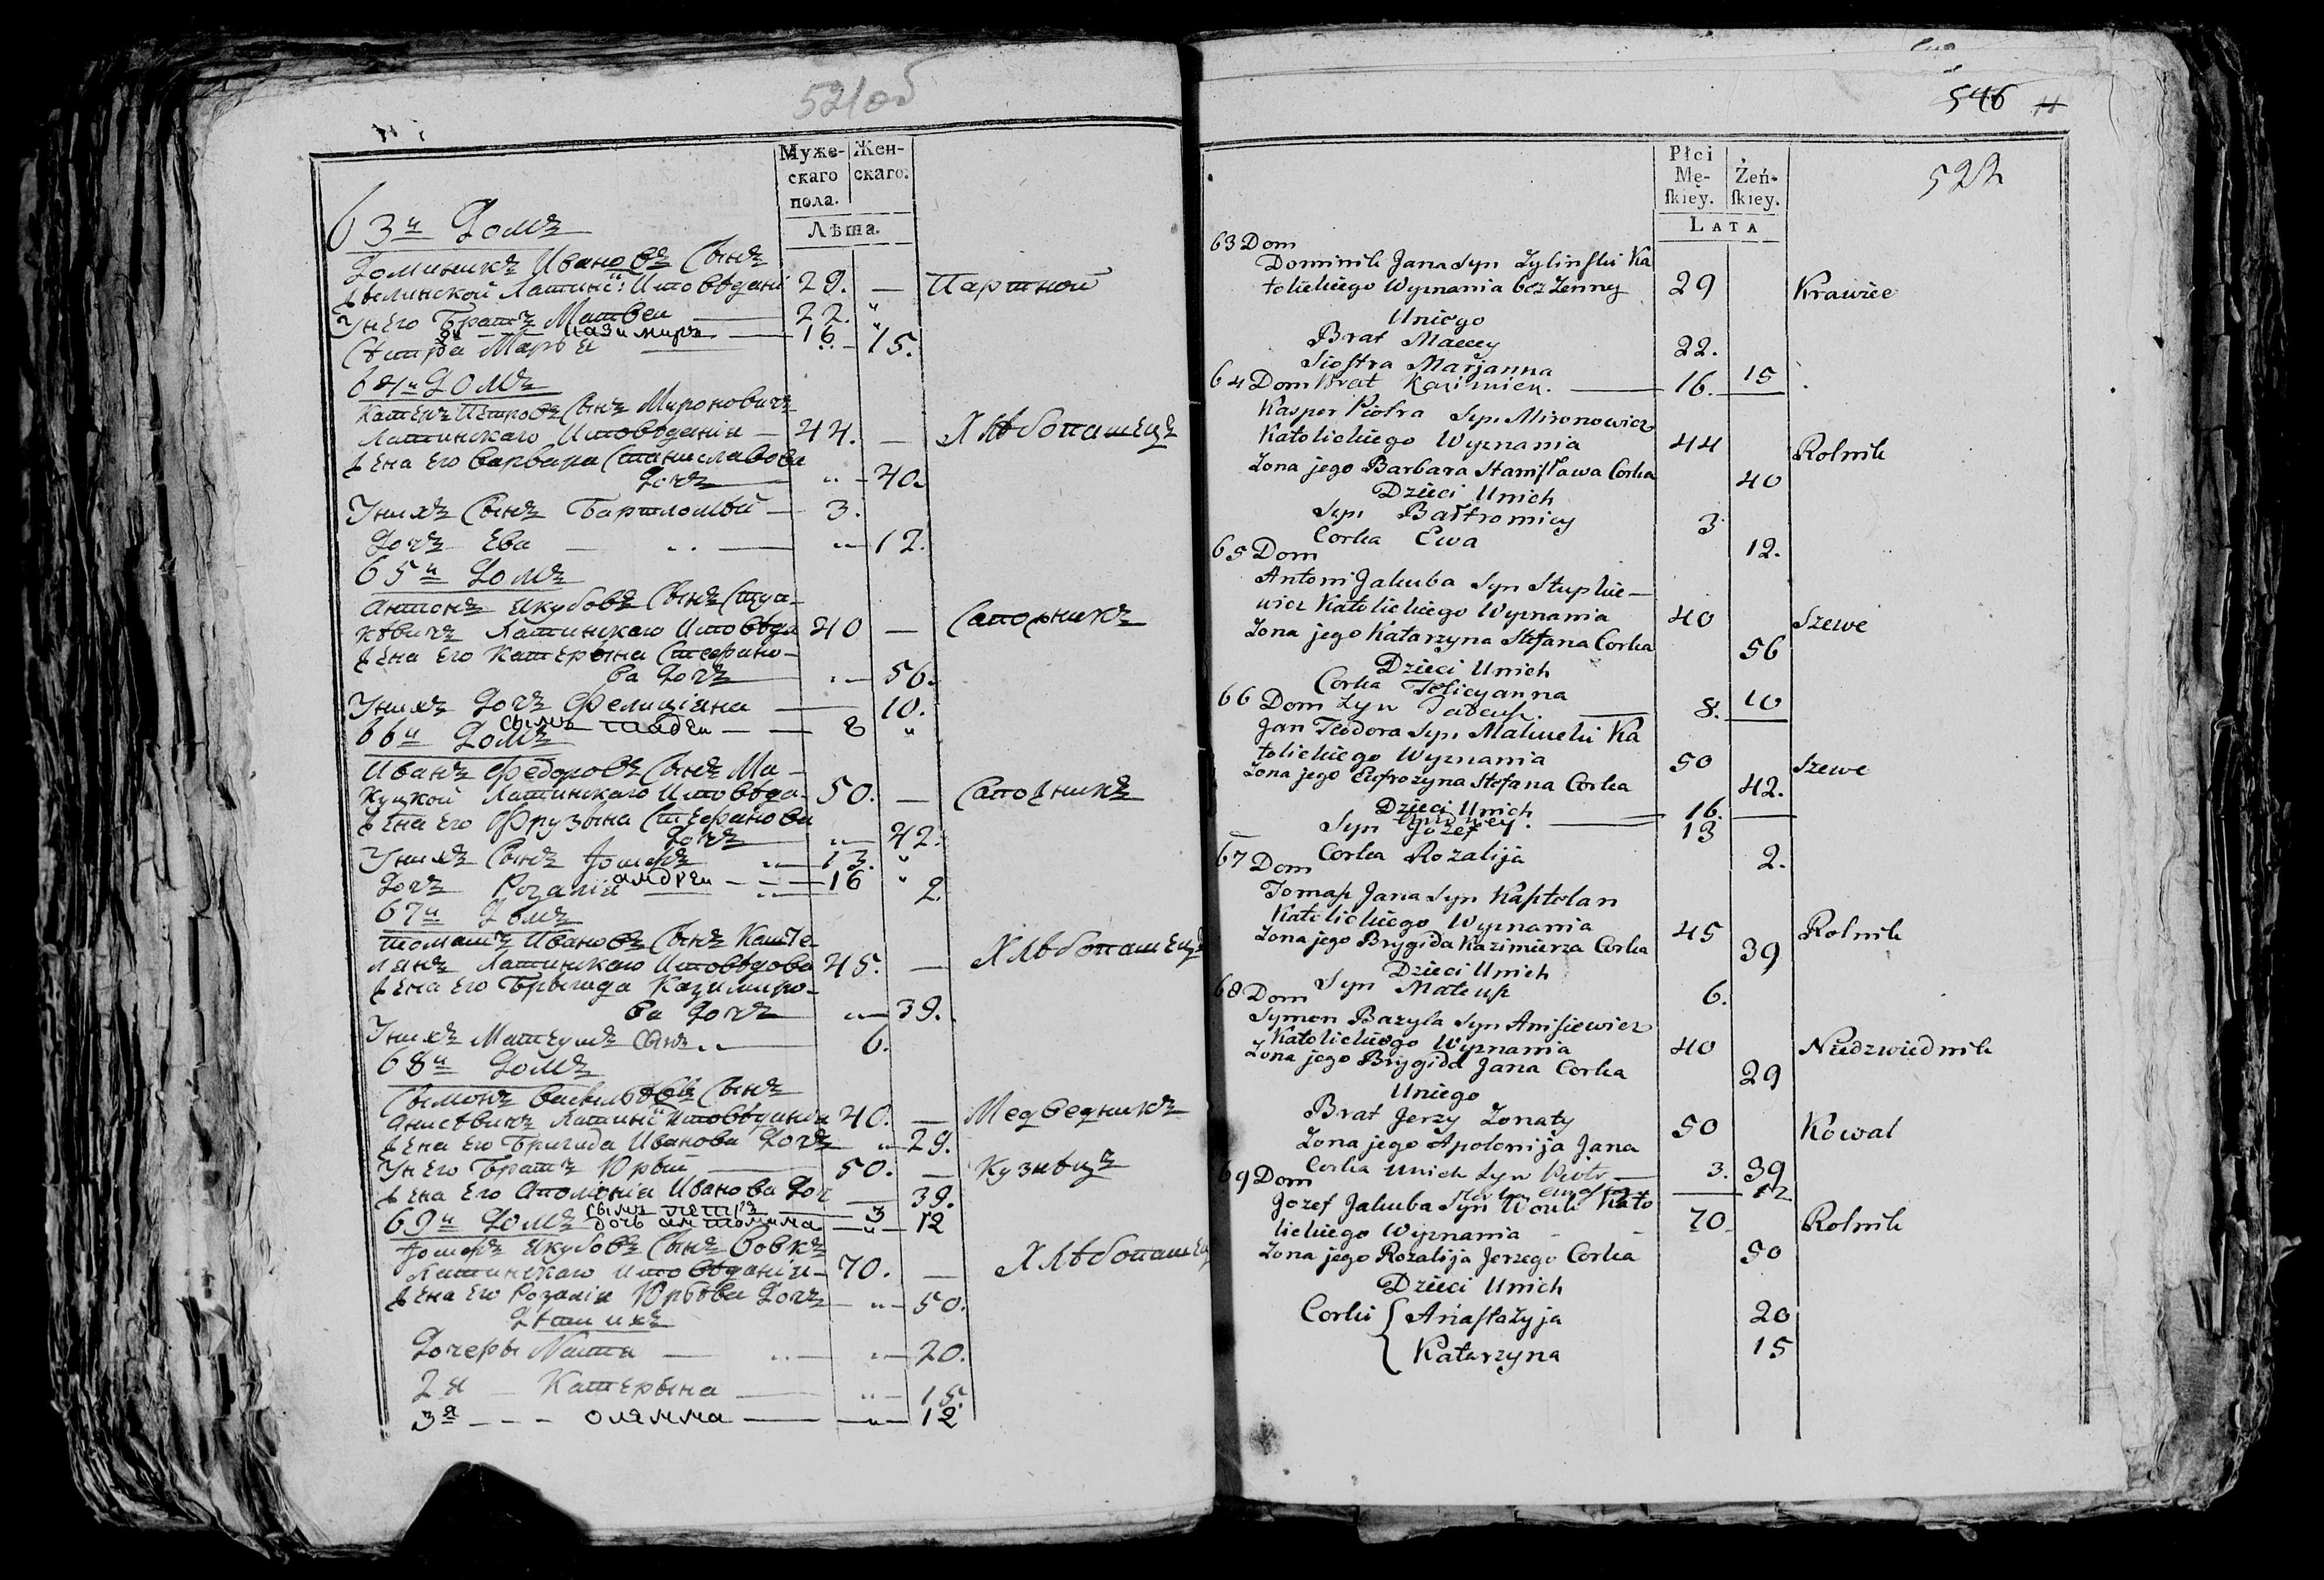 521об
Муже- Жен-
скаго скаго.
пола.
Лѣта.
63й Домъ
Доминикъ Ивановъ Сынъ
Жилинской Латинс: Исповѣдані 29. — Партной
У него Братъ Матвеи — 22. "
2й Казимиръ — 16
Сестра Марья — " — 15.
64й Домъ
Касперъ Петровъ Сынъ Мироновичъ
Латинскаго Исповѣданія — 44. — Хлѣбопашецъ
Жена его Варвара Станиславова
Дочъ — " — 40.
У нихъ Сынъ Бартломѣй — 3.
Дочъ Ева — " — 12.
65й Домъ
Антонъ Якубовъ Сынъ Ступ-
кѣвичъ Латинскаго Исповѣда 40 — Сапожникъ
Жена его Катерына Стефано-
ва Дочъ — " — 56.
У нихъ Дочъ Фелициана — 10.
Сынъ Тадеи — — 8 "
66й Домъ
Иванъ Федоровъ Сынъ Ма-
куцкой Латинскаго Исповѣда- 50. — Сапожникъ
Жена его Фрузына Стефанова
Дочъ — " — 42.
У нихъ Сынъ Іосифъ " — 13. "
Андреи — — 16 "
Дочъ Розалія — " — 2.
67й Домъ
Томашъ Ивановъ Сынъ Каште-
лянъ Латинскаго Исповѣдова 45. — Хлѣбопашецъ
Жена его Брыгида Казимиро-
ва Дочъ " — 39.
У нихъ Матеушъ Сынъ " — 6.
68й Домъ
Сымонъ Васильовъ Сынъ
Анисѣвичъ Латинс Исповѣданія 40. — Медведникъ
Жена его Бригида Иванова Дочъ " — 29.
У него Братъ Юрый — 50. — Кузнѣцъ
Жена его Аполонія Иванова Доч — 39.
Сынъ Петръ — 3
Дочь Антонина — " — 12
69й Домъ
Іосифъ Якубовъ Сынъ Вовкъ
Латинскаго Исповѣданія — 70. — Хлѣбопашец
Жена его Розалія Юръева Дочъ — " — 50.
Дѣти ихъ
Дочеры Наста — " — " — 20.
2я — Катерына — " — 15.
3я - - - Олямма — — " — 12
546
522
Płci
Mę- Żeń-
skiey. skiey.
LATA
63 Dom
Dominik Jana Syn Zylinski Ka
tolickiego Wyznania bez Zenny 29 Krawiec
Uniego
Brat Maciey 22.
Siostra Marjanna 15
64 Dom Brat Kazimierz. — 16.
Kasper Piotra Syn Mironowicz
Katolickiego Wyznania 44 Rolnik
Zona jego Barbara Stanisława Corka 40
Dzieci Unich
Syn Bałtromiey 3
Corka Ewa 12.
65 Dom
Antoni Jakuba Syn Stupkie-
wicz Katolickiego Wyznania 40 Szewc
Zona jego Katarzyna Stefana Corka 56
Dzieci Unich
Corka Felicyanna 10
66 Dom Syn Tadeusz. — 8.
Jan Teodora Syn Makucki Ka
tolickiego Wyznania 50 Szewc
Zona jego Eufrozyna Stefana Corka 42.
Dzieci Unich
Andrzey. — 16.
Syn Jozef 13
Corka Rozalija 2.
67 Dom
Tomasz Jana Syn Kasztelan
Katolickiego Wyznania 45 Rolnik
Zona jego Brygida Kazimierza Corka 39
Dzieci Unich
Syn Mateusz 6.
68 Dom
Symon Bazyla Syn Anisiewicz
Katolickiego Wyznania 40 Niedzwiednik
Zona jego Brygida Jana Corka 29
Uniego
Brat Jerzy Zonaty 50 Kowal
Zona jego Apolonija Jana
Corka Unich Syn Piotr — 3. 39
12
69 Dom
Jozef Jakuba Syn Wouk Kato
lickiego Wyznania 70 Rolnik
Zona jego Rozalija Jerzego Corka 50
Dzieci Unich
Corki { Anastazyja 20
{ Katarzyna 15